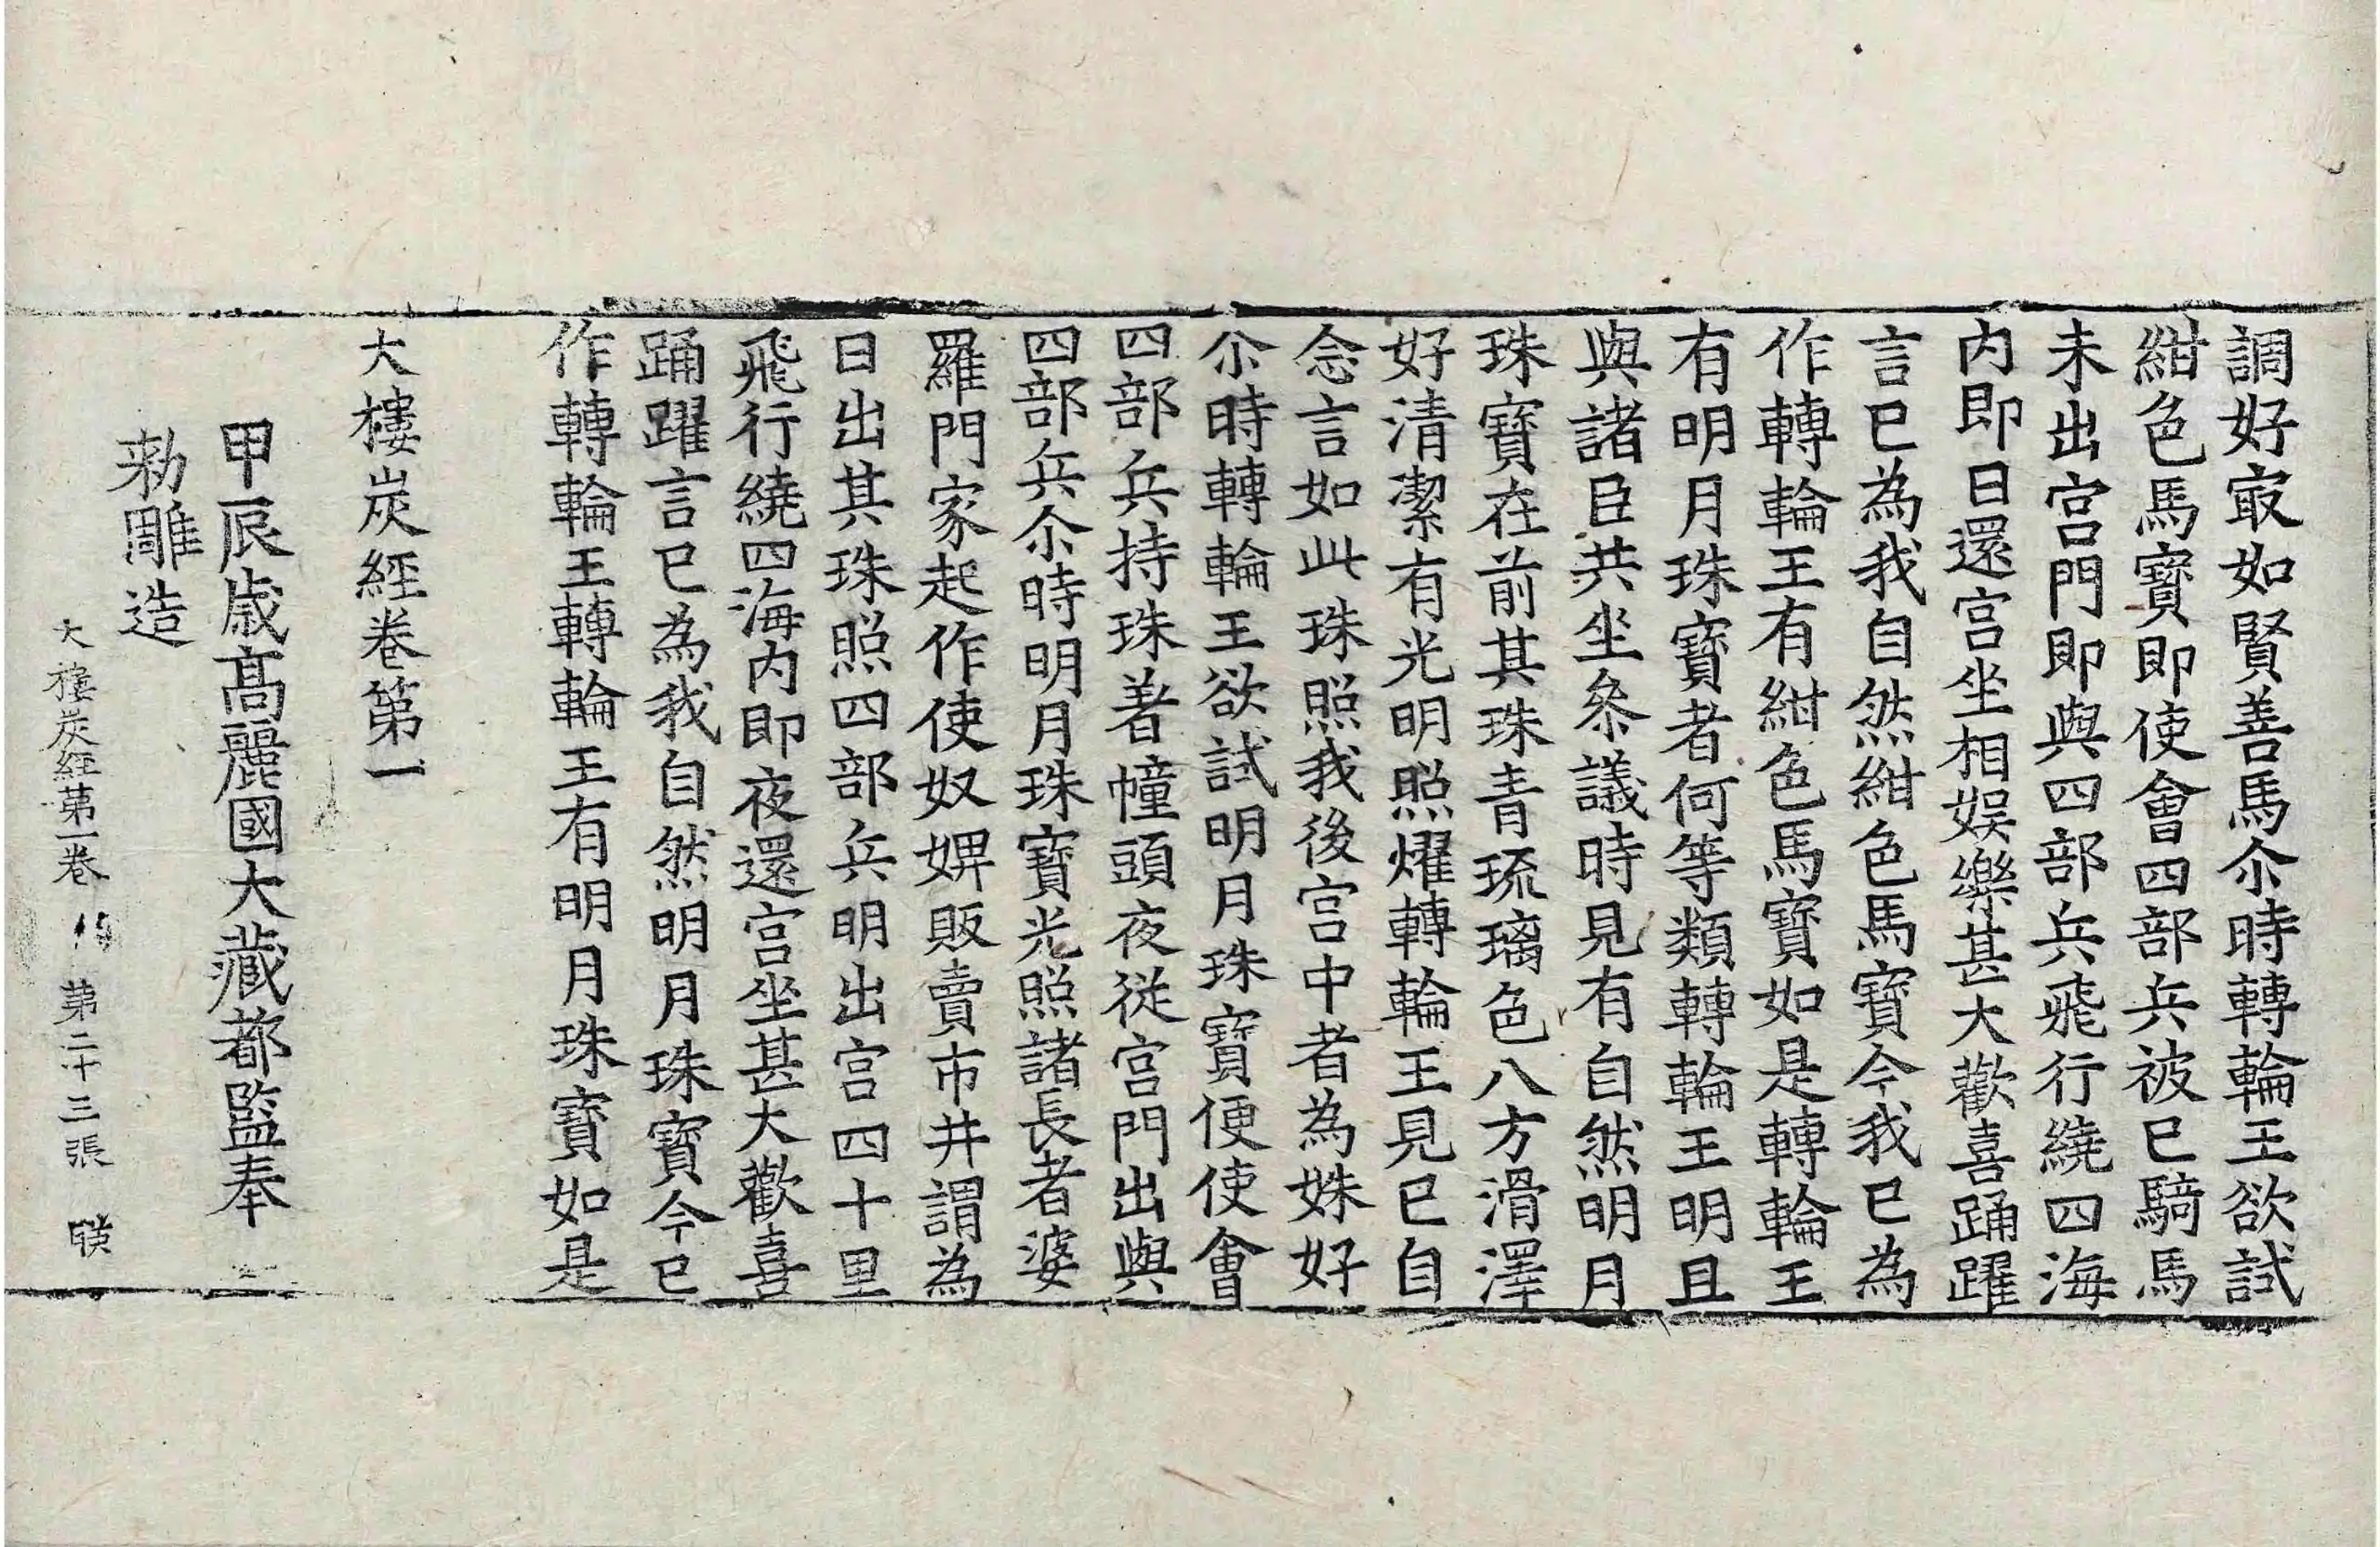 調好㝡如賢善馬尒時轉輪王欲試
紺色馬寶即使會四部兵被已騎馬
未出宮門即與四部兵飛行繞四海
内即日還宮坐相娛樂甚大歡喜踊躍
言已為我自然紺色馬寶今我已為
作轉輪王有紺色馬寶如是轉輪王
有明月珠寶者何等類轉輪王明且
與諸臣共坐叅議時見有自然明月
珠寶在前其珠青琉璃色八方滑澤
好清潔有光明照燿轉輪王見已自
念言如此珠照我後宮中者為姝好
尒時轉輪王欲試明月珠寶便使會
四部兵持珠著幢頭夜從宮門出與
四部兵尒時明月珠寶光照諸長者婆
羅門家起作使奴婢販賣市井謂為
日出其珠照四部兵明出宮四十里
飛行繞四海内即夜還宮坐甚大歡喜
踊躍言已為我自然明月珠寶今已
作轉輪王轉輪王有明月珠寶如是
大樓炭經卷第一
甲辰歳高麗國大藏都監奉
勑雕造
大樓炭經第一卷 第二十三張